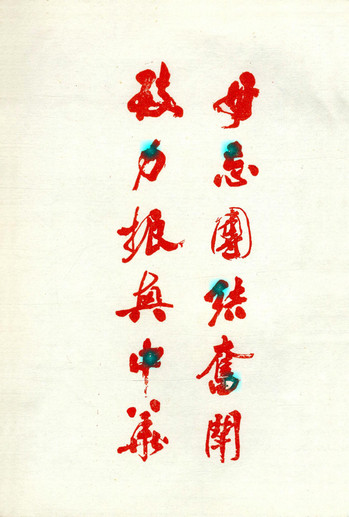 毋忘團結奮鬪
致力振興中華